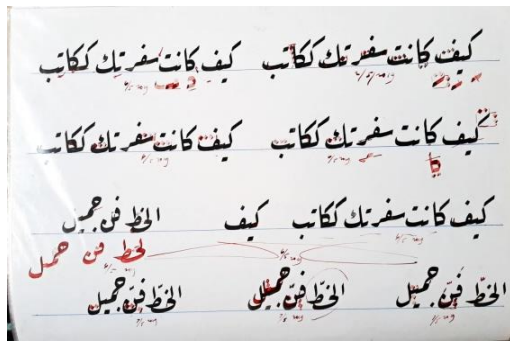 كيف كانت سفرتك ككاتب كيف كانت سفرتك ككاتب
كيف كانت سفرتك ككاتب كيف كانت سفرتك ككاتب
كيف كانت سفرتك ككاتب كيف الخط فن جميل
لخط فن حمل
الخطّ فنّ جميل الخطّ فنّ جميل الخطّ فنّ جميل